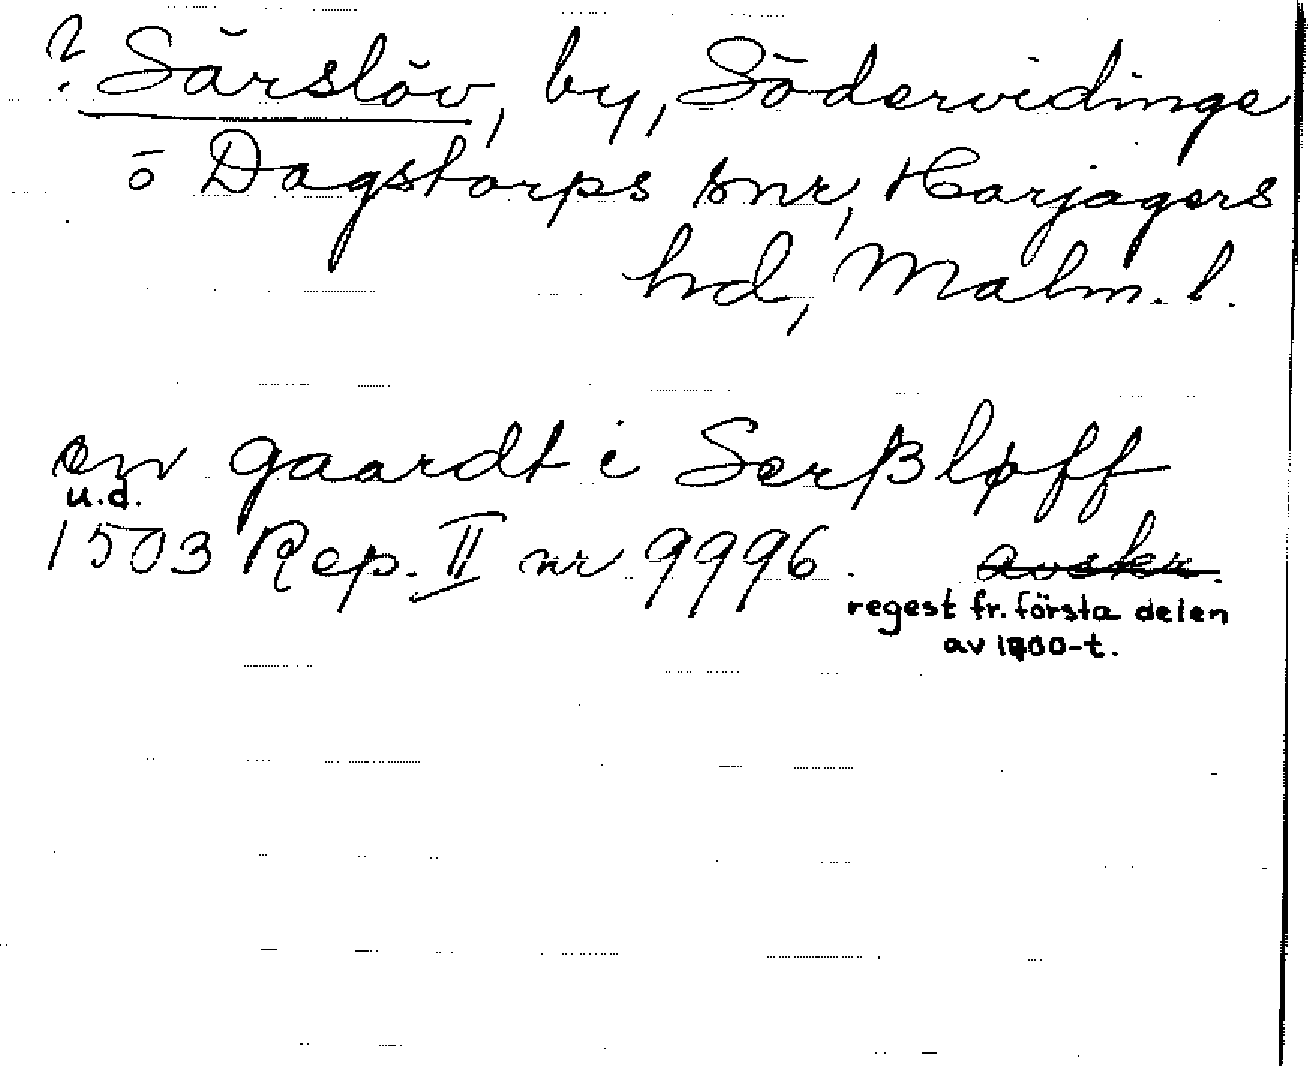 ? Särslöv, by, Södervidinge
o Dagstorps snr, Harjagers
hd, Malm. l.
en gaardt i Serßløff
u.d.
1503 Rep. II nr 9996. avskr.
regest fr. första delen
av 1700-t.